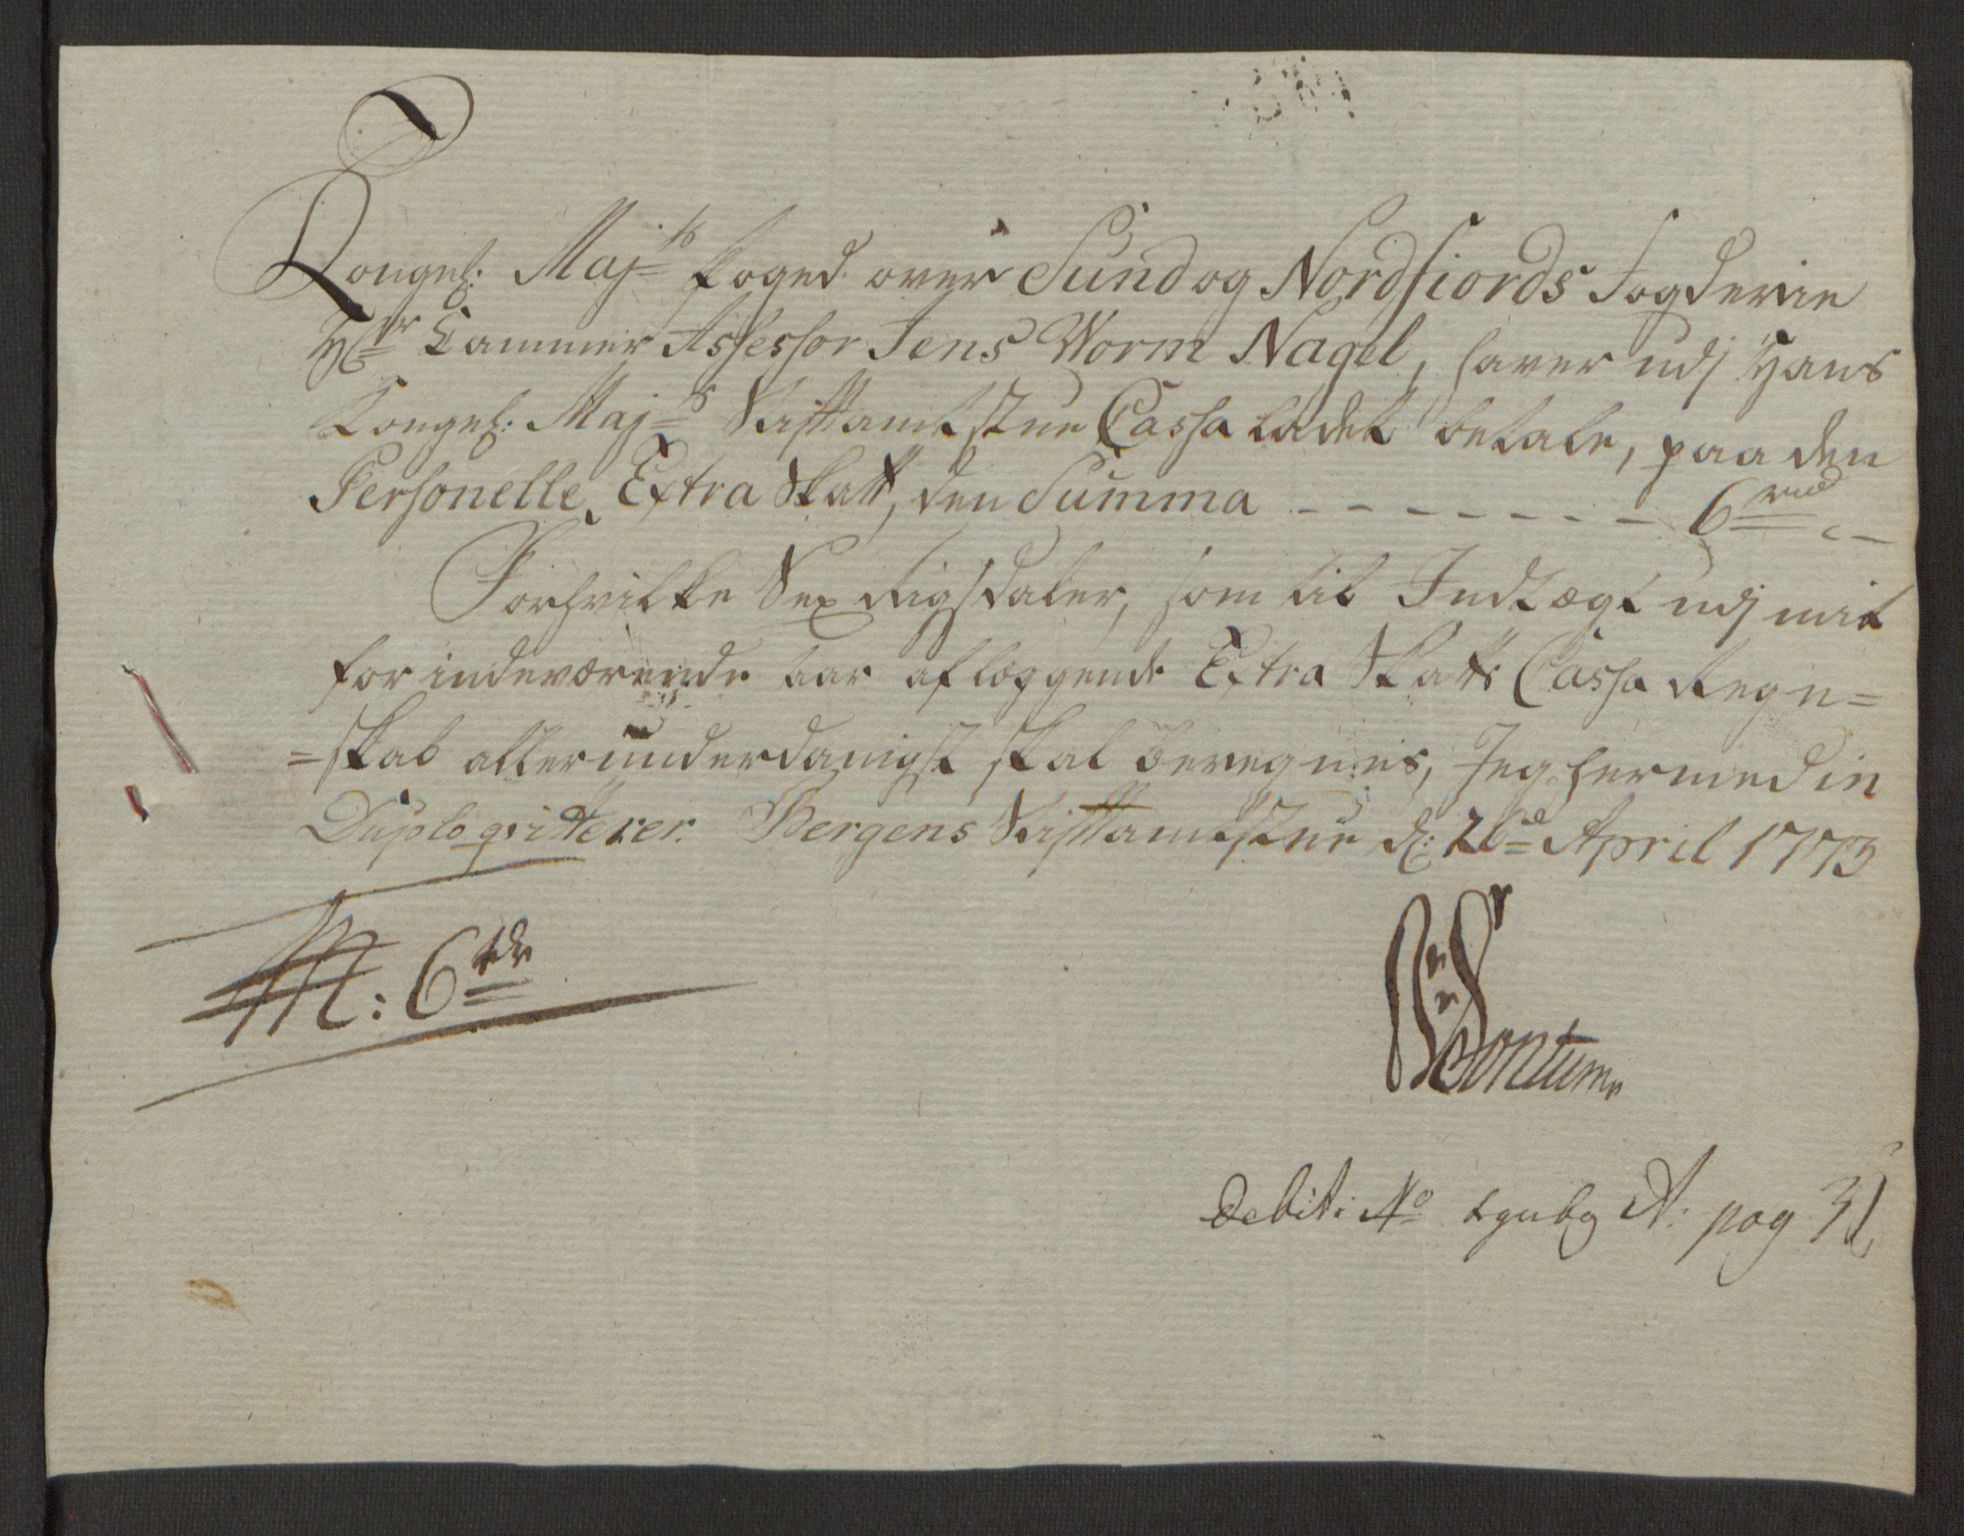 Kongel: Maj:ts Foged over Sund og Nordfiords Fogderie
Hr Cammer Assessor Jens Worm Nagel, haver udj Hans
Kongel: Maj:ts Stiftamtstue Cassa ladet betale, paa den
Personelle Extra Skatt, den Summa - - - - - - - 6 rd
Forhvilke Sex Rigsdaler, som til Indtægt udj mit
for indeværende aar aflæggende Extra Skatts Cassa Regn=
=skab allerunderdanigst skal beregnes, Jeg hermed in
Duplo qvitterer. Bergens Stiftamtstue d: 26d April 1773
6 rdr
debit: No A: pag